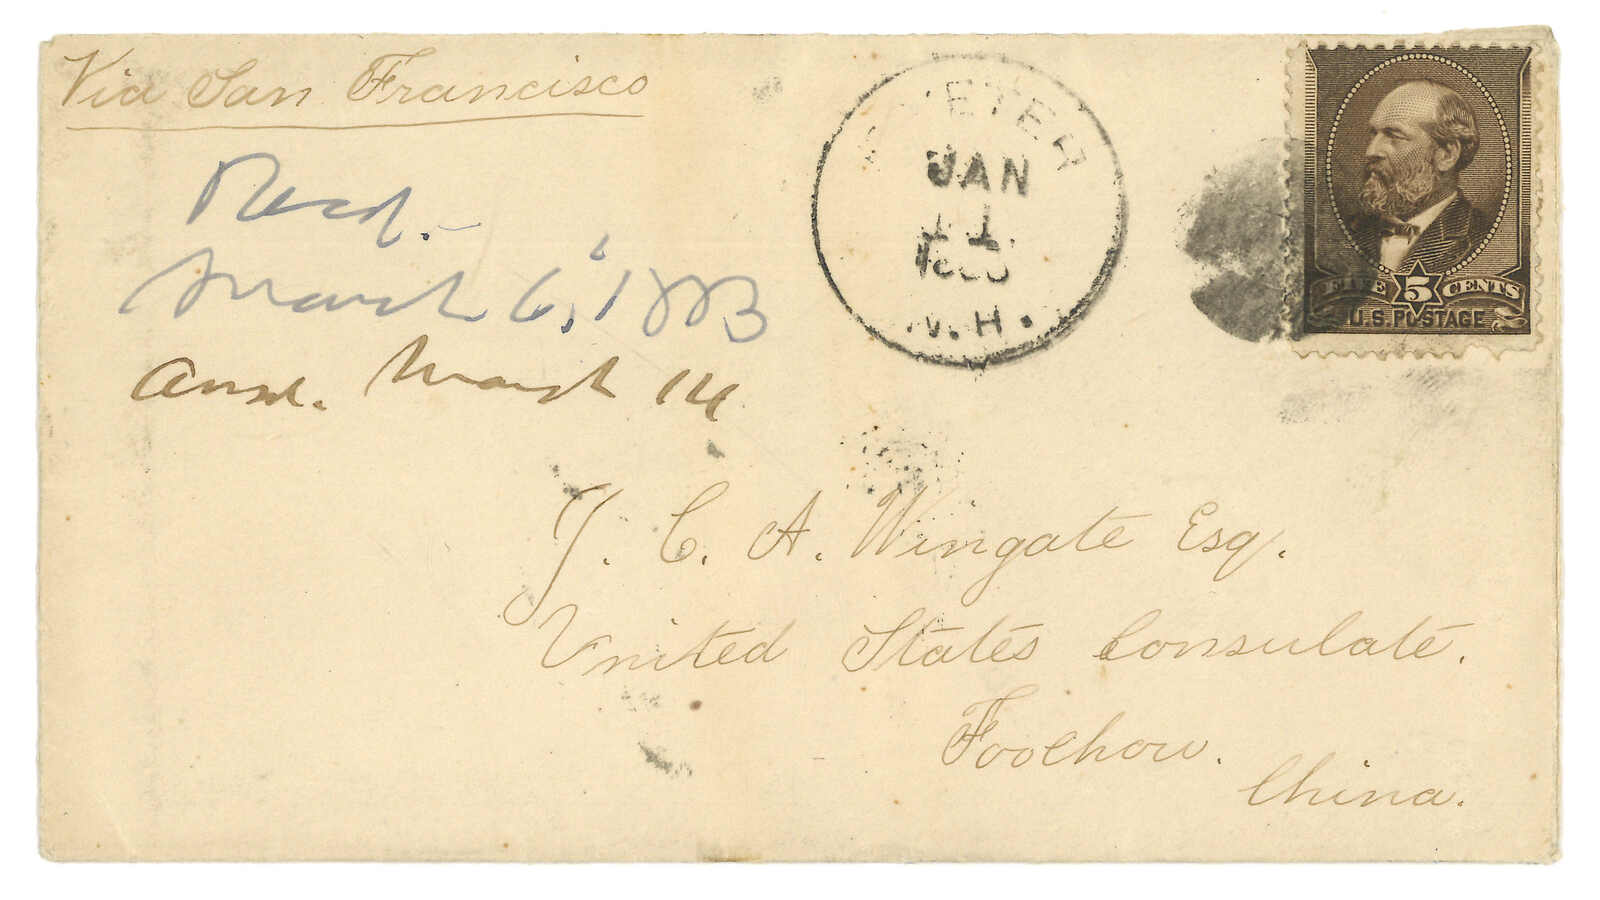 Via San Francisco
Recd.
March 6, 1883
Ansd. March 14
ETER
JAN
11
N.H.
FIVE 5 CENTS
U.S. POSTAGE
J. C. A. Wingate Esq.
United States Consulate.
Foochow.
China.